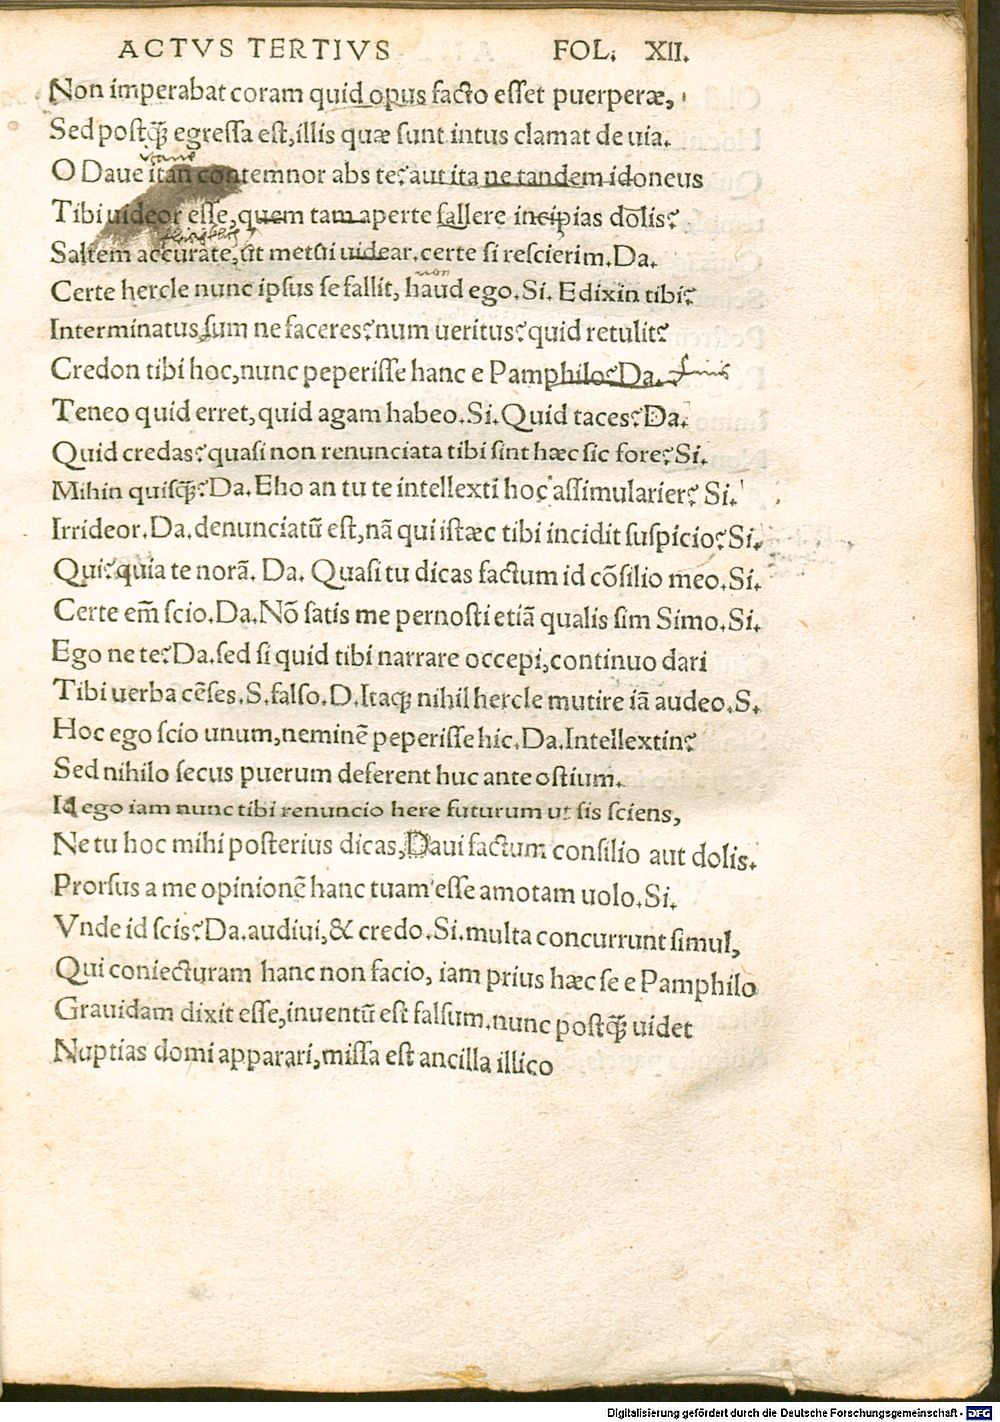 ACTVS TERTIVS FOL. XII.
Non imperabat coram quid opus facto esset puerperæ,
Sed postq̃ egressa est, illis quæ sunt intus clamat de uia.
itane
O Daue itan contemnor abs te? aut ita ne tandem idoneus
Tibi uideor esse, quem tam aperte fallere incipias dolis?
Saltem accurate, ut metui uidear. certe si rescierim. Da.
non
Certe hercle nunc ipsus se fallit, haud ego. Si. Edixin tibi?
Interminatus sum ne faceres? num ueritus? quid retulit?
Credon tibi hoc, nunc peperisse hanc e Pamphilo? Da.
Teneo quid erret, quid agam habeo. Si. Quid taces? Da.
Quid credas? quasi non renunciata tibi sint hæc sic fore? Si.
Mihin quisq̃? Da. Eho an tu te intellexti hoc assimularier? Si.
Irrideor. Da. denunciatũ est, nã qui istæc tibi incidit suspicio? Si.
Qui? quia te norã. Da. Quasi tu dicas factum id cõsilio meo. Si.
Certe em̃ scio. Da. Nõ satis me pernosti etiã qualis sim Simo. Si.
Ego ne te? Da. sed si quid tibi narrare occepi, continuo dari
Tibi uerba cẽses. S. falso. D. Itaq; nihil hercle mutire iã audeo. S.
Hoc ego scio unum, neminẽ peperisse hic. Da. Intellextin?
Sed nihilo secus puerum deferent huc ante ostium.
Id ego iam nunc tibi renuncio here futurum ut sis sciens,
Ne tu hoc mihi posterius dicas, Daui factum consilio aut dolis.
Prorsus a me opinionẽ hanc tuam esse amotam uolo. Si.
Vnde id scis? Da. audiui, & credo. Si. multa concurrunt simul,
Qui coniecturam hanc non facio, iam prius hæc se e Pamphilo
Grauidam dixit esse, inuentũ est falsum. nunc postq̃ uidet
Nuptias domi apparari, missa est ancilla illico
Digitalisierung gefördert durch die Deutsche Forschungsgemeinschaft - DFG